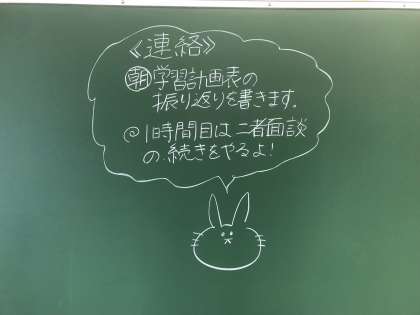 《連絡》
朝 学習計画表の
振り返りを書きます。
◎1時間目は二者面談
の続きをやるよ!